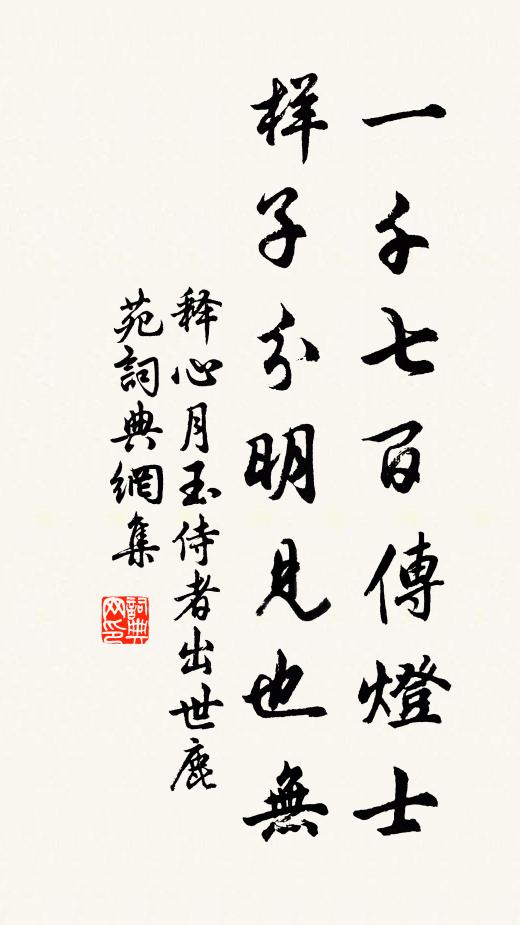 一千七百傳燈士
样子分明見也無
释心月玉侍者出世鹿
苑詞典網集
詞典
网印